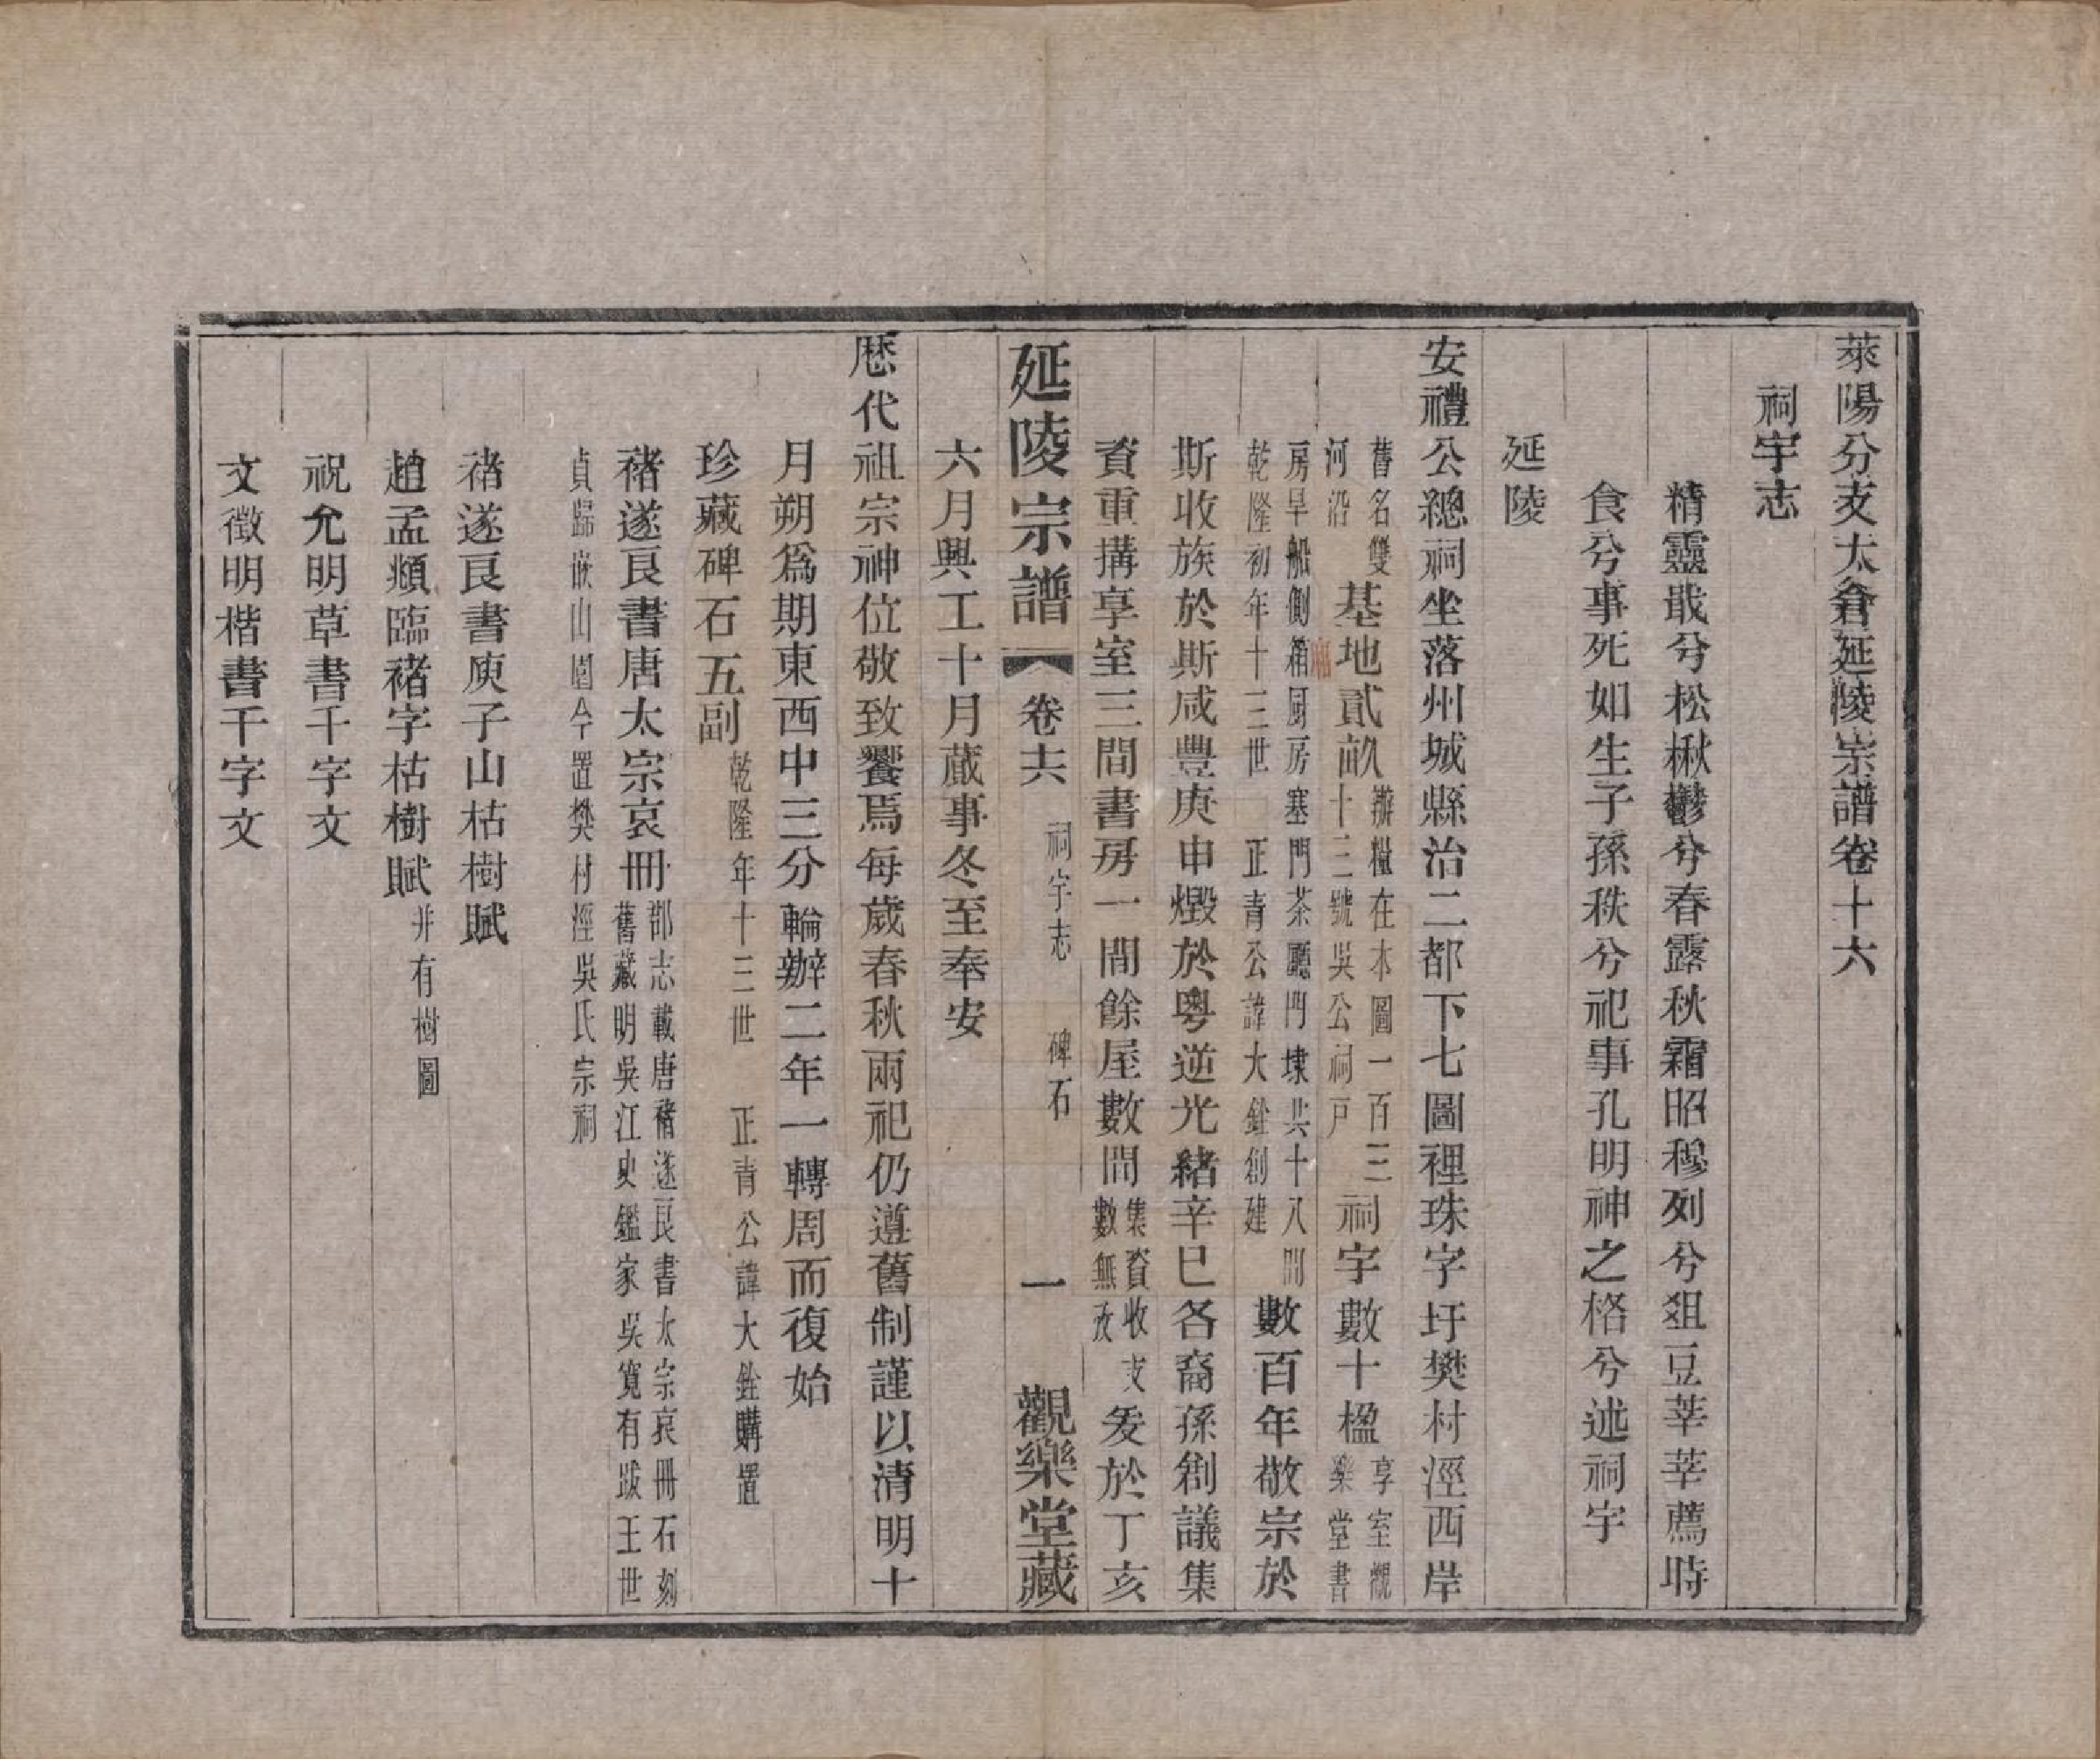 萊陽分支太倉延陵宗譜卷十六
祠宇志
精靈戢兮松楸鬱兮春露秋霜昭穆列兮俎豆莘莘薦時
食兮事死如生子孫秩兮祀事孔明神之格兮述祠宇
延陵
安禮公總祠坐落州城縣治二都下七圖裡珠字圩樊村涇西岸
舊名雙
河沿
基地貳畝
辦糧在本圖一百三
十三號吳公祠戶
祠宇數十楹
享室觀
樂堂書
房旱船側箱厨房塞門茶廳門埭共十八間
乾隆初年十三世 正青公諱大銓創建
數百年敬宗於
斯收族於斯咸豐庚申燬於粵逆光緒辛巳各裔孫創議集
資重搆享室三間書房一間餘屋數間
集資收支
數無攷
爰於丁亥
延陵宗譜 卷十六 祠宇志 碑石 一 觀樂堂藏
六月興工十月蕆事冬至奉安
歷代祖宗神位敬致饗焉每歲春秋兩祀仍遵舊制謹以清明十
月朔爲期東西中三分輪辦二年一轉周而復始
珍藏碑石五副
乾隆年十三世 正青公諱大銓購置
褚遂良書唐太宗哀冊
郡志載唐褚遂良書太宗哀冊石刻
舊藏明吳江史鑑家吳寬有跋王世
貞歸嵌山園今置樊村涇吳氏宗祠
褚遂良書庾子山枯樹賦
趙孟頫臨褚字枯樹賦
并有樹圖
祝允明草書千字文
文徵明楷書千字文